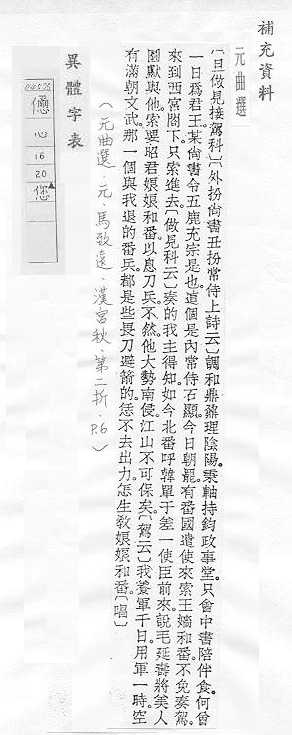 補充資料
元曲選
(旦做見接駕科)(外扮尙書丑扮常侍上詩云)調和鼎鼐理陰陽。秉軸持鈞政事堂。只會中書陪伴食。何曾
一日爲君王。某尙書令五鹿充宗是也。這個是內常侍石顯。今日朝罷。有番國遣使來索王嬙和番。不免奏駕。
來到西宮閣下。只索進去。(做見科云)奏的我主得知。如今北番呼韓單于差一使臣前來。說毛延壽將美人
圖獻與他。索要昭君娘娘和番。以息刀兵。不然。他大勢南侵。江山不可保矣。(駕云)我養軍千日。用軍一時。空
有滿朝文武。那一個與我退的番兵。都是些畏刀避箭的。恁不去出力。怎生敎娘娘和番。(唱)
(元曲選.元.馬致遠.漢宮秋.第二折.P.6)
異體字表
心
16
20
您